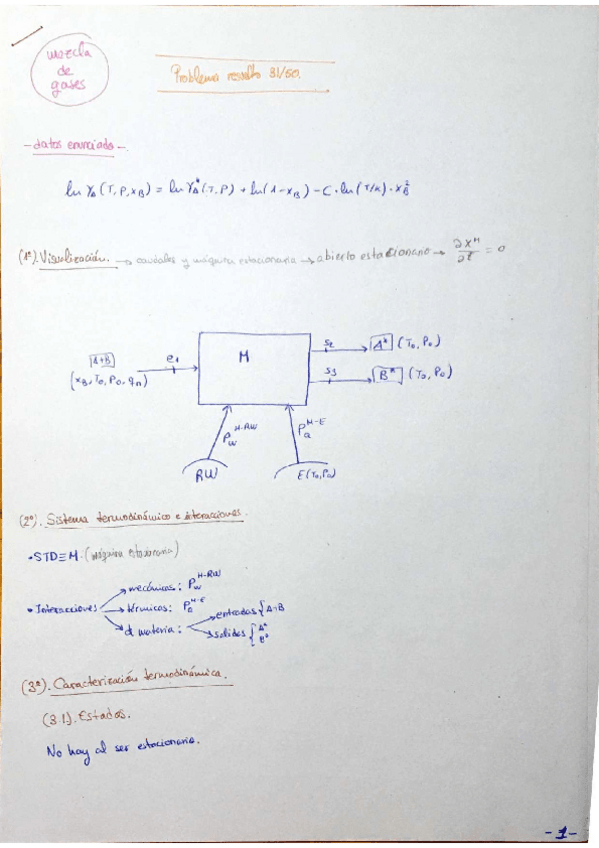 mezcla
de
gases
Problema resuelto 31/60.
- datos enunciado -
ln γA (T, P, xB) = ln γA* (T, P) + ln(1-xB) - C · ln(T/K) · xB²
(1º). Visualización. → caudales y máquina estacionaria → abierto estacionario → ∂X^M/∂t = 0
A+B
(xB, T0, P0, qn)
e1
M
s2
A* (T0, P0)
s3
B* (T0, P0)
PW^M-RW
PQ^M-E
RW
E(T0, P0)
(2º). Sistema termodinámico e interacciones.
• STD ≡ M. (máquina estacionaria)
• Interacciones
mecánicas: PW^M-RW
térmicas: PQ^M-E
d materia:
entradas { A+B
salidas { A* B*
(3º). Caracterización termodinámica.
(3.1). Estados.
No hay al ser estacionario.
-1-